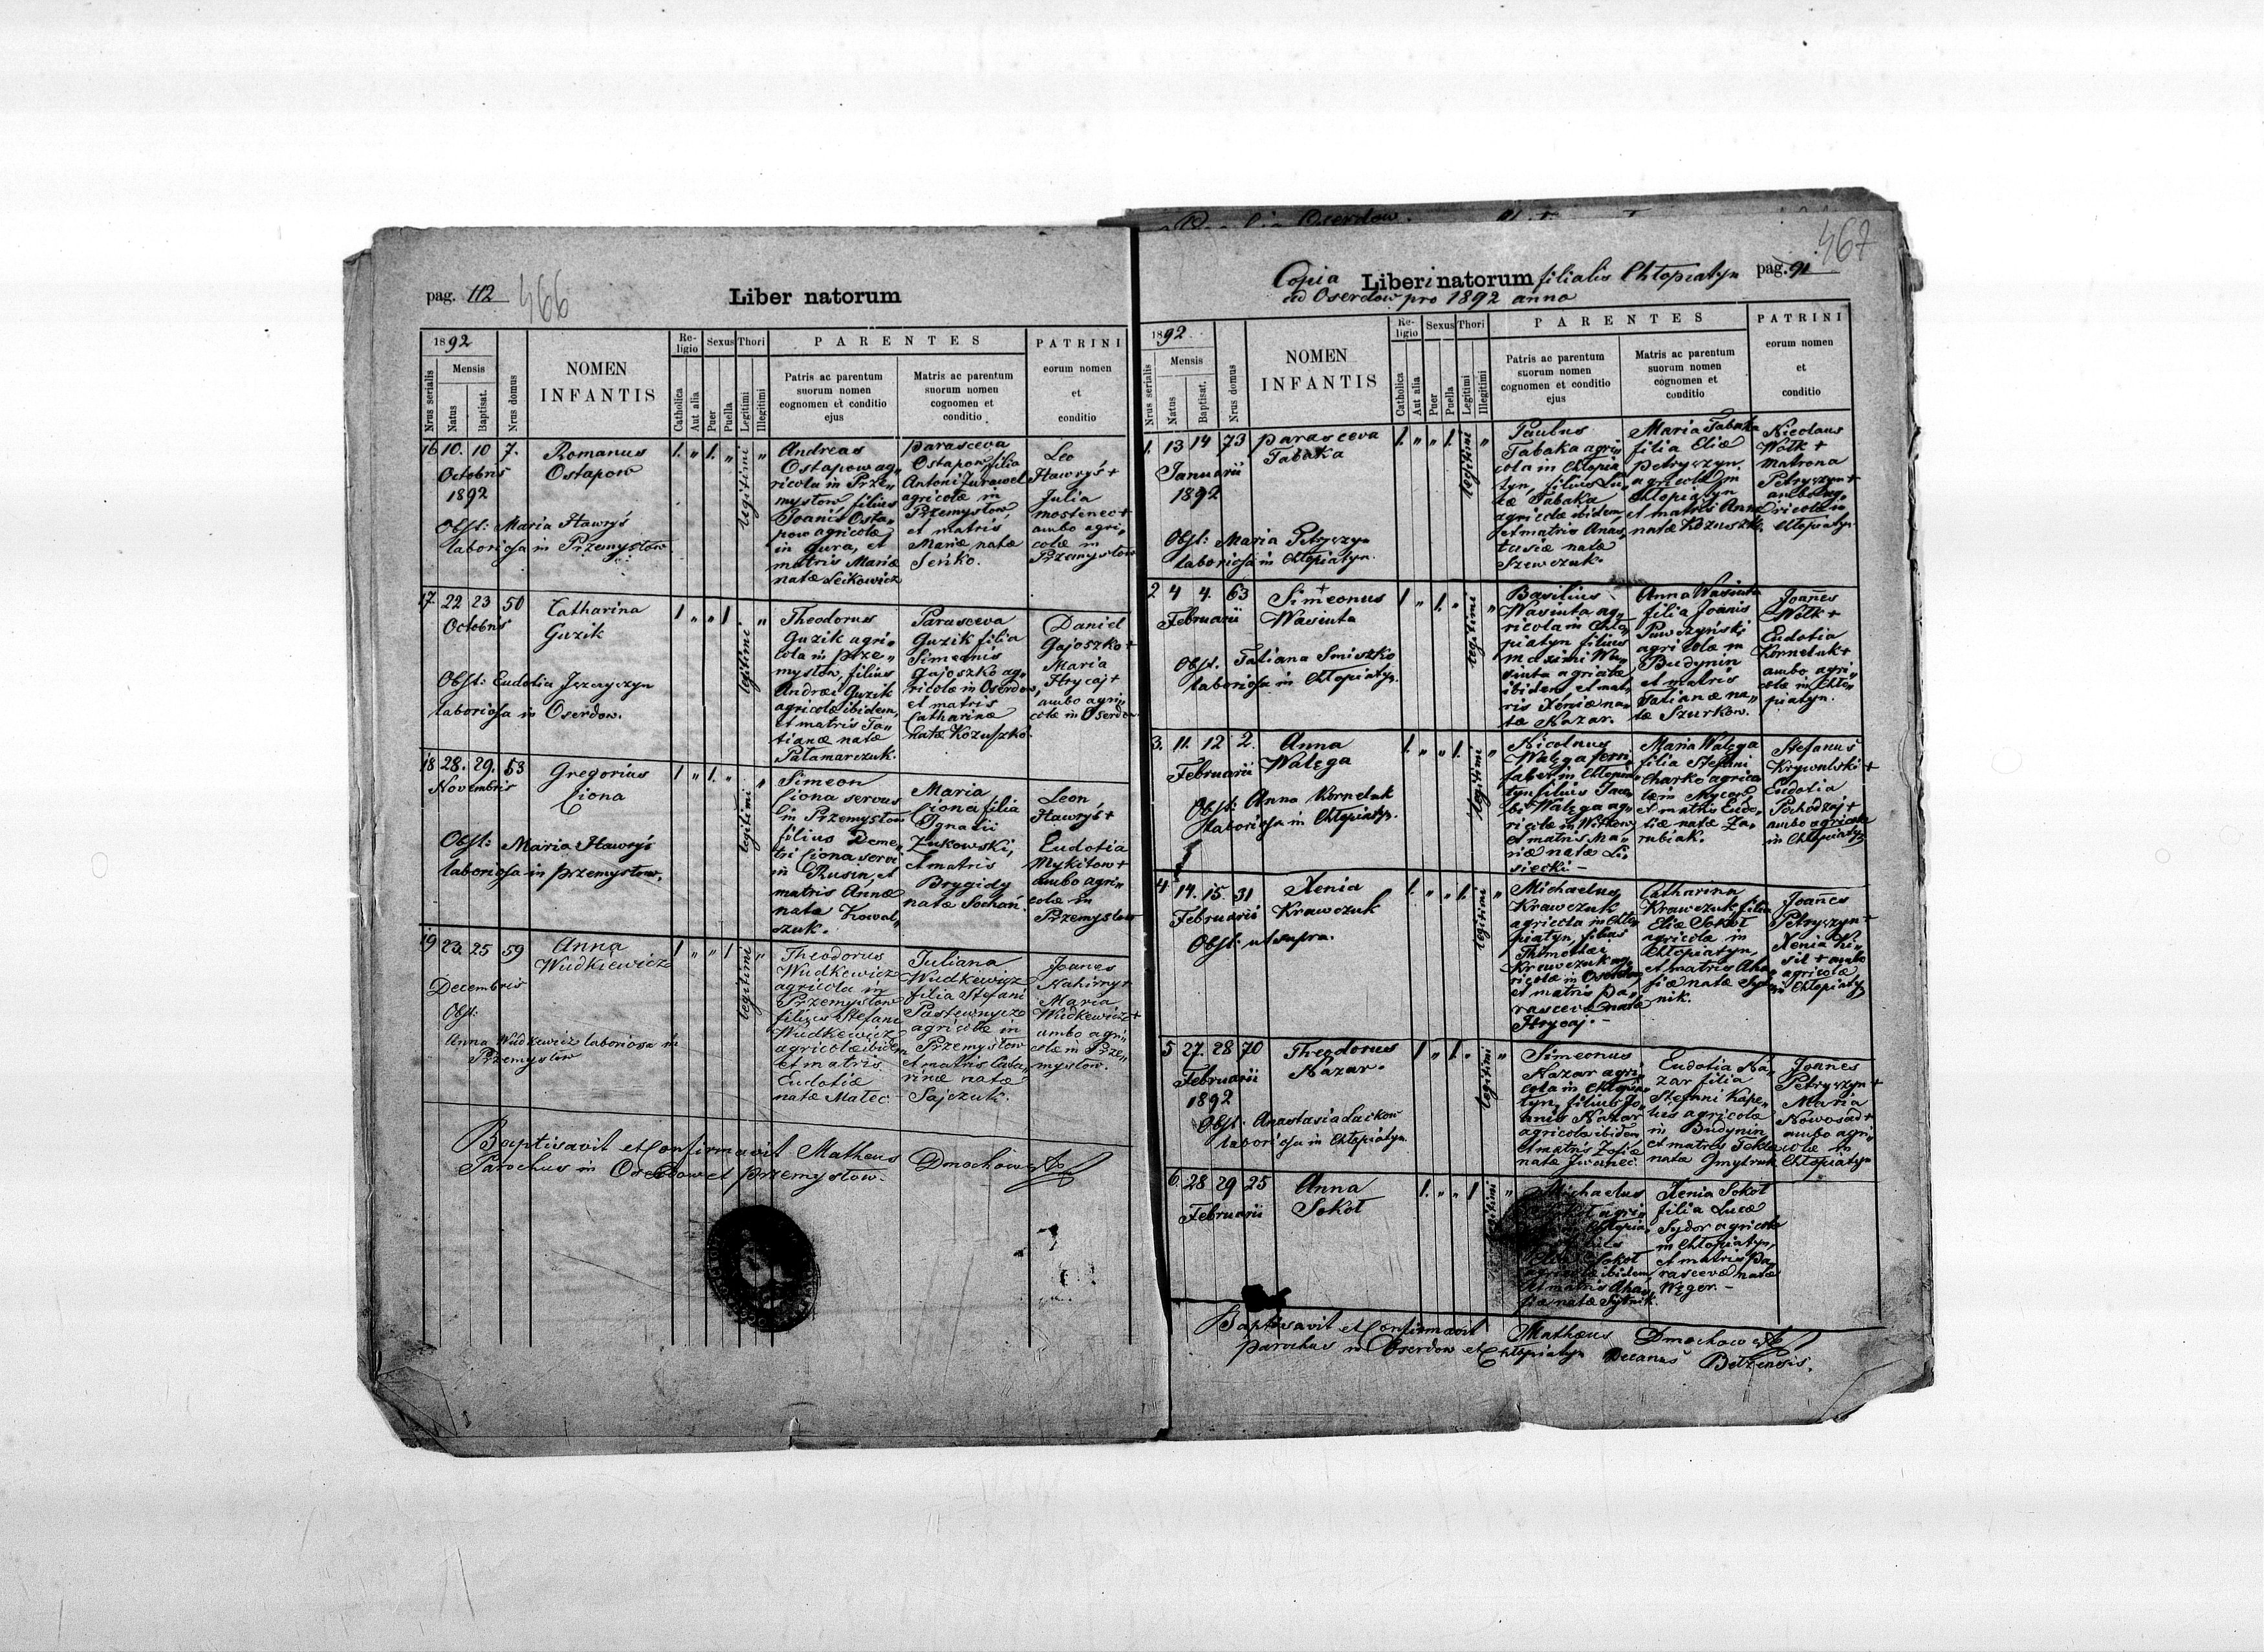 pag. 112
466
Liber natorum
1892
Nrus serialis
Mensis
Natus
Baptisat.
Nrus domus
NOMEN
INFANTIS
Religio
Catholica
Aut alia
Sexus
Puer
Puella
Thori
Legitimi
Illegitimi
PARENTES
Patris ac parentum
suorum nomen
cognomen et conditio
ejus
Matris ac parentum
suorum nomen
cognomen et
conditio
PATRINI
eorum nomen
et
conditio
16 10. 10 7.
Octobris
1892
Romanus
Ostapow
1. " 1. " legitimi "
Andreas
Ostapow ag„
ricola in Prze„
mysłow, filius
Joanis Osta„
pow agricolæ
in Gura, et
matris Mariæ
natæ Leikowicz
Parasceva
Ostapow filia
Antoni Żurawel
agricolæ in
Przemysłow,
et matris
Mariæ natæ
Seńko.
Leo
Hawryś +
Julia
Mostenec +
ambo agri„
colæ in
Przemysłow
Obst: Maria Hawryś
laboriosa in Przemysłow
17. 22 23 50
Octobris
Catharina
Guzik
1 " " 1. legitimi "
Theodorus
Guzik agri„
cola in Prze„
mysłow, filius
Andreæ Guzik
agricolæ ibidem,
et matris Ta„
tianæ natæ
Palamarczuk.
Parasceva
Guzik filia
Simeonis
Gajoszko ag„
ricolæ in Oserdow,
et matris
Catharinæ
natæ Kozuszko.
Daniel
Gajoszko +
Maria
Hrycaj +
ambo agri„
colæ in Oserdow
Obst: Eudotia
laboriosa in Oserdow.
18 28. 29. 53
Novembris
Gregorius
Ciona
1 " 1. " legitimi "
Simeon
Ciona servus
in Przemysłow
filius Deme„
tri Ciona servi
in Rusin, et
matris Annæ
natæ Kowal„
szuk.
Maria
Ciona filia
Ignatii
Żukowski,
et matris
Brygidy
natæ Sochań.
Leon
Hawryś +
Eudotia
Mykitow +
ambo agri„
colæ in
Przemysłow
Obst: Maria Hawryś
laboriosa in Przemysłow.
19 23. 25 59
Decembris
Anna
Wudkiewicz
1 " " 1 legitimi "
Theodorus
Wudkewicz
agricola in
Przemysłow
filius Stefani
Wudkewicz
agricolæ ibidem
et matris
Eudotiæ
natæ Malec
Juliana
Wudkewicz
filia Stefani
agricolæ in
Przemysłow
et matris Catha„
rinæ natæ
Sajczuk.
Joanes
Nahirny +
Maria
Wudkewicz +
ambo agri„
colæ in Prze„
mysłow.
Obst:
Anna Wudkewicz laboriosa in
Przemysłow
Baptisavit et Confirmavit Matheus Dmochowski
Parochus in Oserdow et Przemysłow.
467
Copia Liberi natorum filialis Chłopiatyn pag. 91
ad Oserdow pro 1892 anno
1892.
Nrus serialis
Mensis
Natus
Baptisat.
Nrus domus
NOMEN
INFANTIS
Religio
Catholica
Aut alia
Sexus
Puer
Puella
Thori
Legitimi
Illegitimi
PARENTES
Patris ac parentum
suorum nomen
cognomen et conditio
ejus
Matris ac parentum
suorum nomen
cognomen et
conditio
PATRINI
eorum nomen
et
conditio
1. 13 14 73
Januarii
1892
Parasceva
Tabaka
1. " " 1. legitimi "
Paulus
Tabaka agri„
cola in Chłopia
tyn, filius Lu„
cæ Tabaka
agricolæ ibidem,
et matris Anas„
tasiæ natæ
Szewczuk.
Maria Tabaka
filia Eliæ
Petryszyn,
agricolæ in
Chłopiatyn
et matris Annæ
natæ Kozuszko.
Nicolaus
Wołk +
Matrona
Petryszyn +
ambo ag„
ricolæ in
Chłopiatyn
Obst: Maria Petryszyn
laboriosa in Chłopiatyn.
2 4 4. 63
Februarii
Simeonus
Wasiuta
1 " 1. " legitimi "
Basilius
Wasiuta ag„
ricola in Chło„
piatyn filius
Maximi Wa„
siuta agricolæ
ibidem, et mat„
ris Xeniæ na„
tæ Nazar.
Anna Wasiuta
filia Joanis
agricolæ in
Budynin
et matris
Tatianæ na„
tæ Szurkow.
Joannes
Wołk +
Eudotia
Korneluk +
ambo agri„
colæ in Chło„
piatyn.
Obst. Tatiana Smiszko
laboriosa in Chłopiatyn.
3. 11. 12 2.
Februarii
Anna
Walęga
1. " " 1. legitimi "
Nicolaus
Walęga ferri„
faber in Chłopia„
tyn filius Jaco„
bi Walęga ag„
ricolæ in Witkow,
et matris Ma„
riæ natæ Li„
siecki. –
Maria Walęga
filia Stefani
Charko agrico
læ in Mycow,
et matris Eudo„
tiæ natæ Za„
rubiak.
Stefanus
Krywulski +
et
Eudotia
Pochodzaj +
ambo agricolæ
in Chłopiatyn
Obst: Anna Korneluk
laboriosa in Chłopiatyn.
4. 14. 15. 31
Februarii
Xenia
Krawczuk
1. " " 1. legitimi "
Michaelus
Krawczuk
agricola in Chło„
piatyn, filius
Thimothei
Krawczuk ag„
ricolæ in Oserdow,
et matris Pa„
rascevæ natæ
Hrycaj. –
Catharina
Krawczuk filia
Eliæ Sokoł
agricolæ in
Chłopiatyn,
et matris Aha„
fiæ natæ Syt„
nik.
Joannes
Petryszyn +
Xenia Ki„
sil + ambo
agricolæ
in Chłopiatyn
Obst: ut supra.
5 27. 28 70
Februarii
1892
Theodorus
Nazar.
1 " 1. " legitimi "
Simeonus
Nazar agri„
cola in Chłopia„
tyn, filius Jo„
anis Nazar
agricolæ ibidem
et matris Zofiæ
natæ Iwanec.
Eudotia Na„
zar filia
Stefani Kape„
lus agricolæ
in Budynin
et matris Teklæ
natæ Gmytruk
Joannes
Petryszyn +
Maria
Nowosad +
ambo agri„
colæ in
Chłopiatyn
Obst. Anastasia Luckow
laboriosa in Chłopiatyn.
6. 28 29 25
Februarii
Anna
Sokoł
1. " " 1 legitimi "
Michaelus
Sokoł agri„
Chłopia„
Sokoł
agricolæ ibidem,
et matris Aha„
fiæ natæ Sytnik.
Xenia Sokoł
filia Lucæ
Sydor agricolæ
in Chłopiatyn,
et matris Pa„
rascevæ natæ
Węger. –
Baptisavit et Confirmavit Matheus Dmochowski
Parochus in Oserdow et Chłopiatyn Decanus Bełzensis.